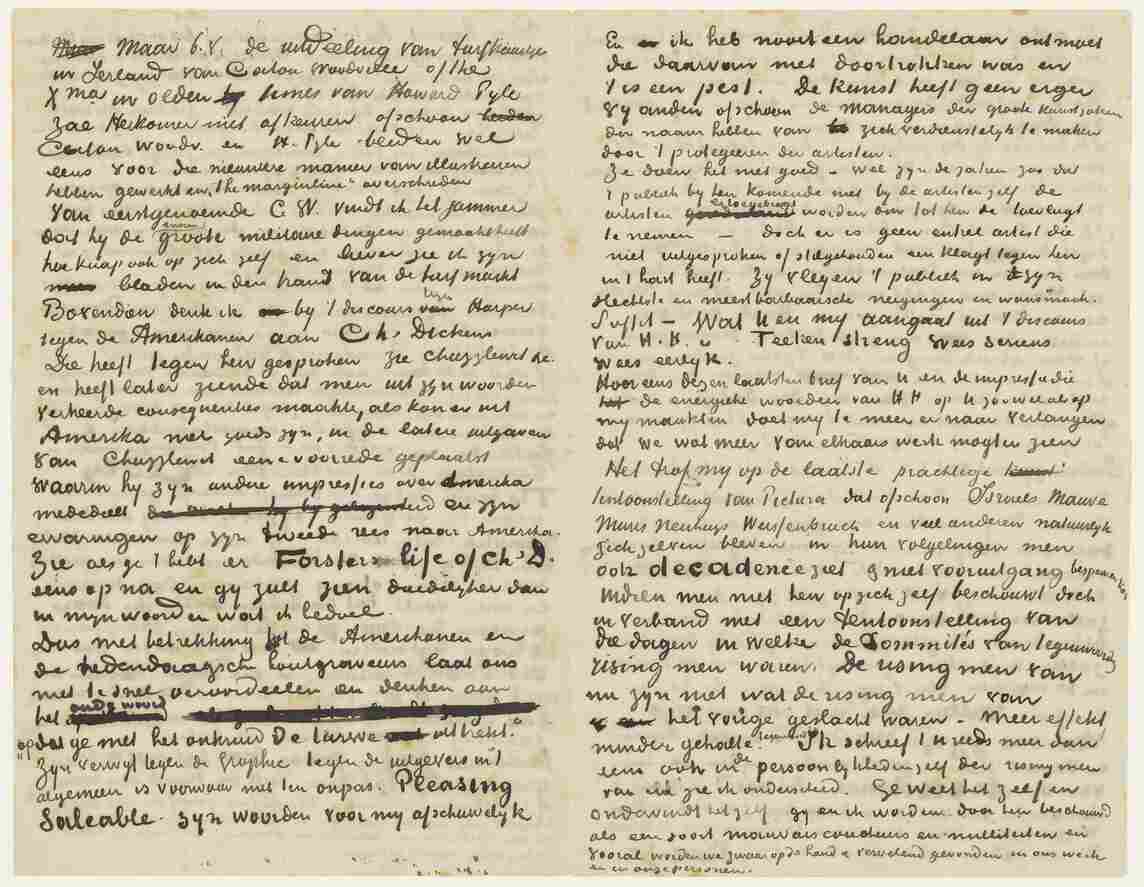 Maar b.v. de uitdeeling van turfkaartjes
in Ierland van Caton Woodville of the
Xmas in olden times van Howard Pyle
zal Herkomer niet afkeuren ofschoon
Caton Woodv. en H. Pyle beiden wel
eens voor die nieuwere manier van illustreeren
hebben gewerkt en "the marginline" overschreden
Van eerstgenoemde C W. vindt ik het jammer
dat hy de groote militaire dingen gemaakt heeft
hoe knap ook op zich zelf en liever zie ik zyn
bladen in den trant van de turfmarkt
Bovendien denk ik by 't discours van Harper
tegen de Amerikanen aan Ch. Dickens
Die heeft tegen hen gesproken zie Chuzzlewit &c.
en heeft later ziende dat men uit zyn woorden
verkeerde consequenties maakte, als kon er uit
Amerika niet goeds zyn, in de latere uitgaven
van Chuzzlewit eene voorrede geplaatst
waarin hy zyn andere impressies over Amerika
mededeelt en zyn
ervaringen op zyn tweede reis naar Amerika.
Zie als ge 't hebt er Forsters life of Ch. D.
eens op na en gy zult zien duidelyker dan
in myn woorden wat ik bedoel.
Dus met betrekking tot de Amerikanen en
de hedendaagsche houtgraveurs laat ons
niet te snel veroordeelen en denken aan
het oude woord
"op dat ge met het onkruid de tarwe uittrekt."
Zyn verwyt tegen de Graphic tegen de uitgevers in 't
algemeen is voorwaar niet ten onpas. Pleasing
Saleable. zyn woorden voor my afschuwelyk
En ik heb nooit een handelaar ontmoet
die daarvan niet doortrokken was en
't is een pest. De kunst heeft geen erger
vyanden ofschoon de managers der groote kunstzaken
den naam hebben van zich verdienstelyk te maken
door 't protegeeren der artisten.
Ze doen het niet goed – wel zyn de zaken zoo dat
't publiek by hen komende niet by de artisten zelf de
artisten worden om tot hen de toevlugt
te nemen – doch er is geen enkel artist die
niet uitgesproken of stilgehouden een klagt tegen hen
in 't hart heeft. Zy vleyen 't publiek in zyn
slechtste en meest barbaarsche neigingen en wansmaak.
Suffit – Wat U en my aangaat uit 't discours
van H. H. is Teeken streng wees serieus
wees eerlyk.
Hoor eens dezen laatsten brief van U en de impressie die
de energieke woorden van HH op U zoowel als op
my maakten doet my te meer er naar verlangen
dat we wat meer van elkaars werk mogten zien
Het trof my op de laatste prachtige
tentoonstelling van Pictura dat ofschoon Israels Mauve
Maris Neuhuys Weissenbruch en veel anderen natuurlyk
zich zelven bleven in hun volgelingen men
ook decadence ziet & niet vooruitgang bespeuren kan
Indien men niet hen op zich zelf beschouwt doch
in verband met een tentoonstelling van
de dagen in welke de Sommités van tegenwoordig
rising men waren. De rising men van
nu zyn niet wat de rising men van
het vorige geslacht waren – Meer effekt
minder gehalte. Ik schreef U reeds meer dan
eens ook in de persoonlykheden zelf der rising men
van nu zie ik onderscheid. Ge weet het zelf en
ondervindt het zelf gy en ik worden door hen beschouwd
als een soort mauvais coucheurs en nulliteiten en
vooral worden we zwaar op de hand & vervelend gevonden in ons werk
en in onze personen.